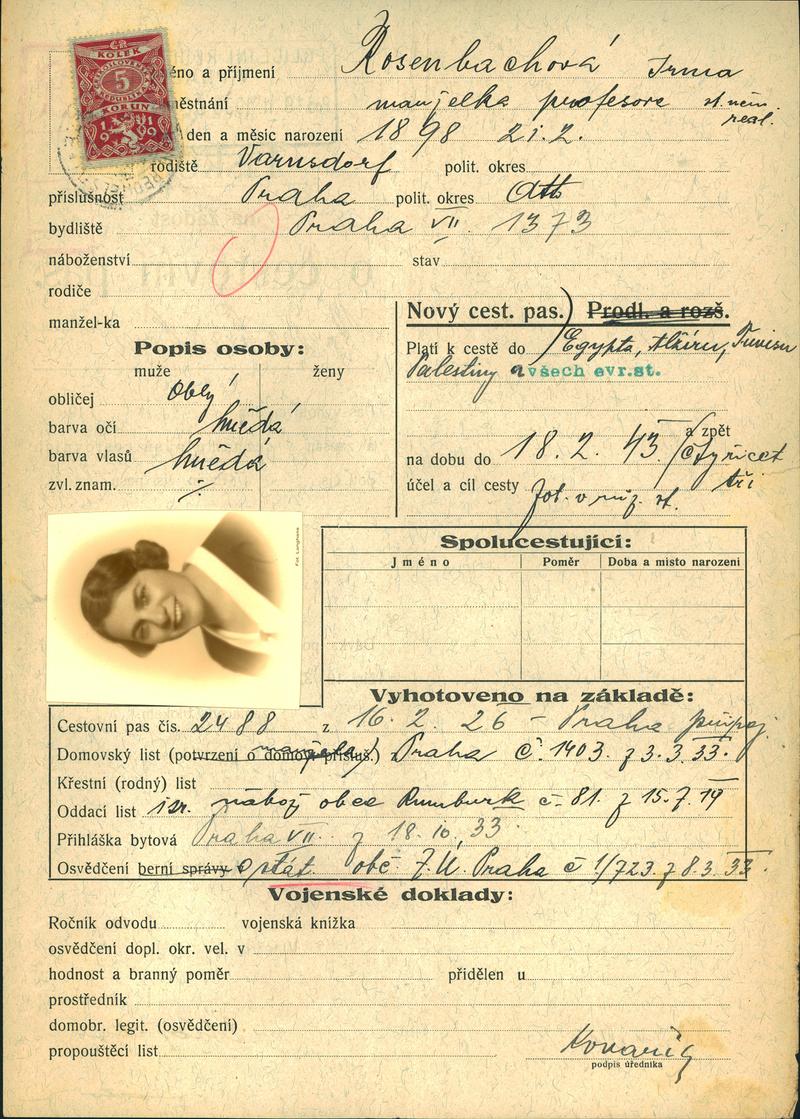 KOLEK
5
KORUN
1919
jméno a příjmení Rosenbachová Irma
městnání manželka profesora st. něm. real.
den a měsíc narození 1898 21.2.
rodiště Varnsdorf polit. okres
příslušnost Praha polit. okres
bydliště Praha VII. 1373
náboženství stav
rodiče
manžel-ka
Nový cest. pas.) Prodl. a rozš.
Platí k cestě do Egypta, Alžíru, Tunisu
Palestiny a všech evr. st.
a zpět
na dobu do 18.2. 43 (čtyřicet
tři
účel a cíl cesty
Popis osoby:
muže ženy
obličej Oblý
barva očí hnědá
barva vlasů hnědá
zvl. znam. ./.
Fot. Langhans
Spolucestující:
Jméno Poměr Doba a místo narození
Vyhotoveno na základě:
Cestovní pas čís. 2488 z 16.2. 26 – Praha
Domovský list (potvrzení o domov. přísluš.) Praha č. 1403. z 3.3.33.
Křestní (rodný) list
Oddací list isr. nábož. obce Rumburk č. 81. z 15.7.19
Přihláška bytová Praha VII. z 18.10.33.
Osvědčení berní správy o stát. obč. Z.Ú. Praha č 1/723. z 8.3.33.
Vojenské doklady:
Ročník odvodu vojenská knížka
osvědčení dopl. okr. vel. v
hodnost a branný poměr přidělen u
prostředník
domobr. legit. (osvědčení)
propouštěcí list
podpis úředníka